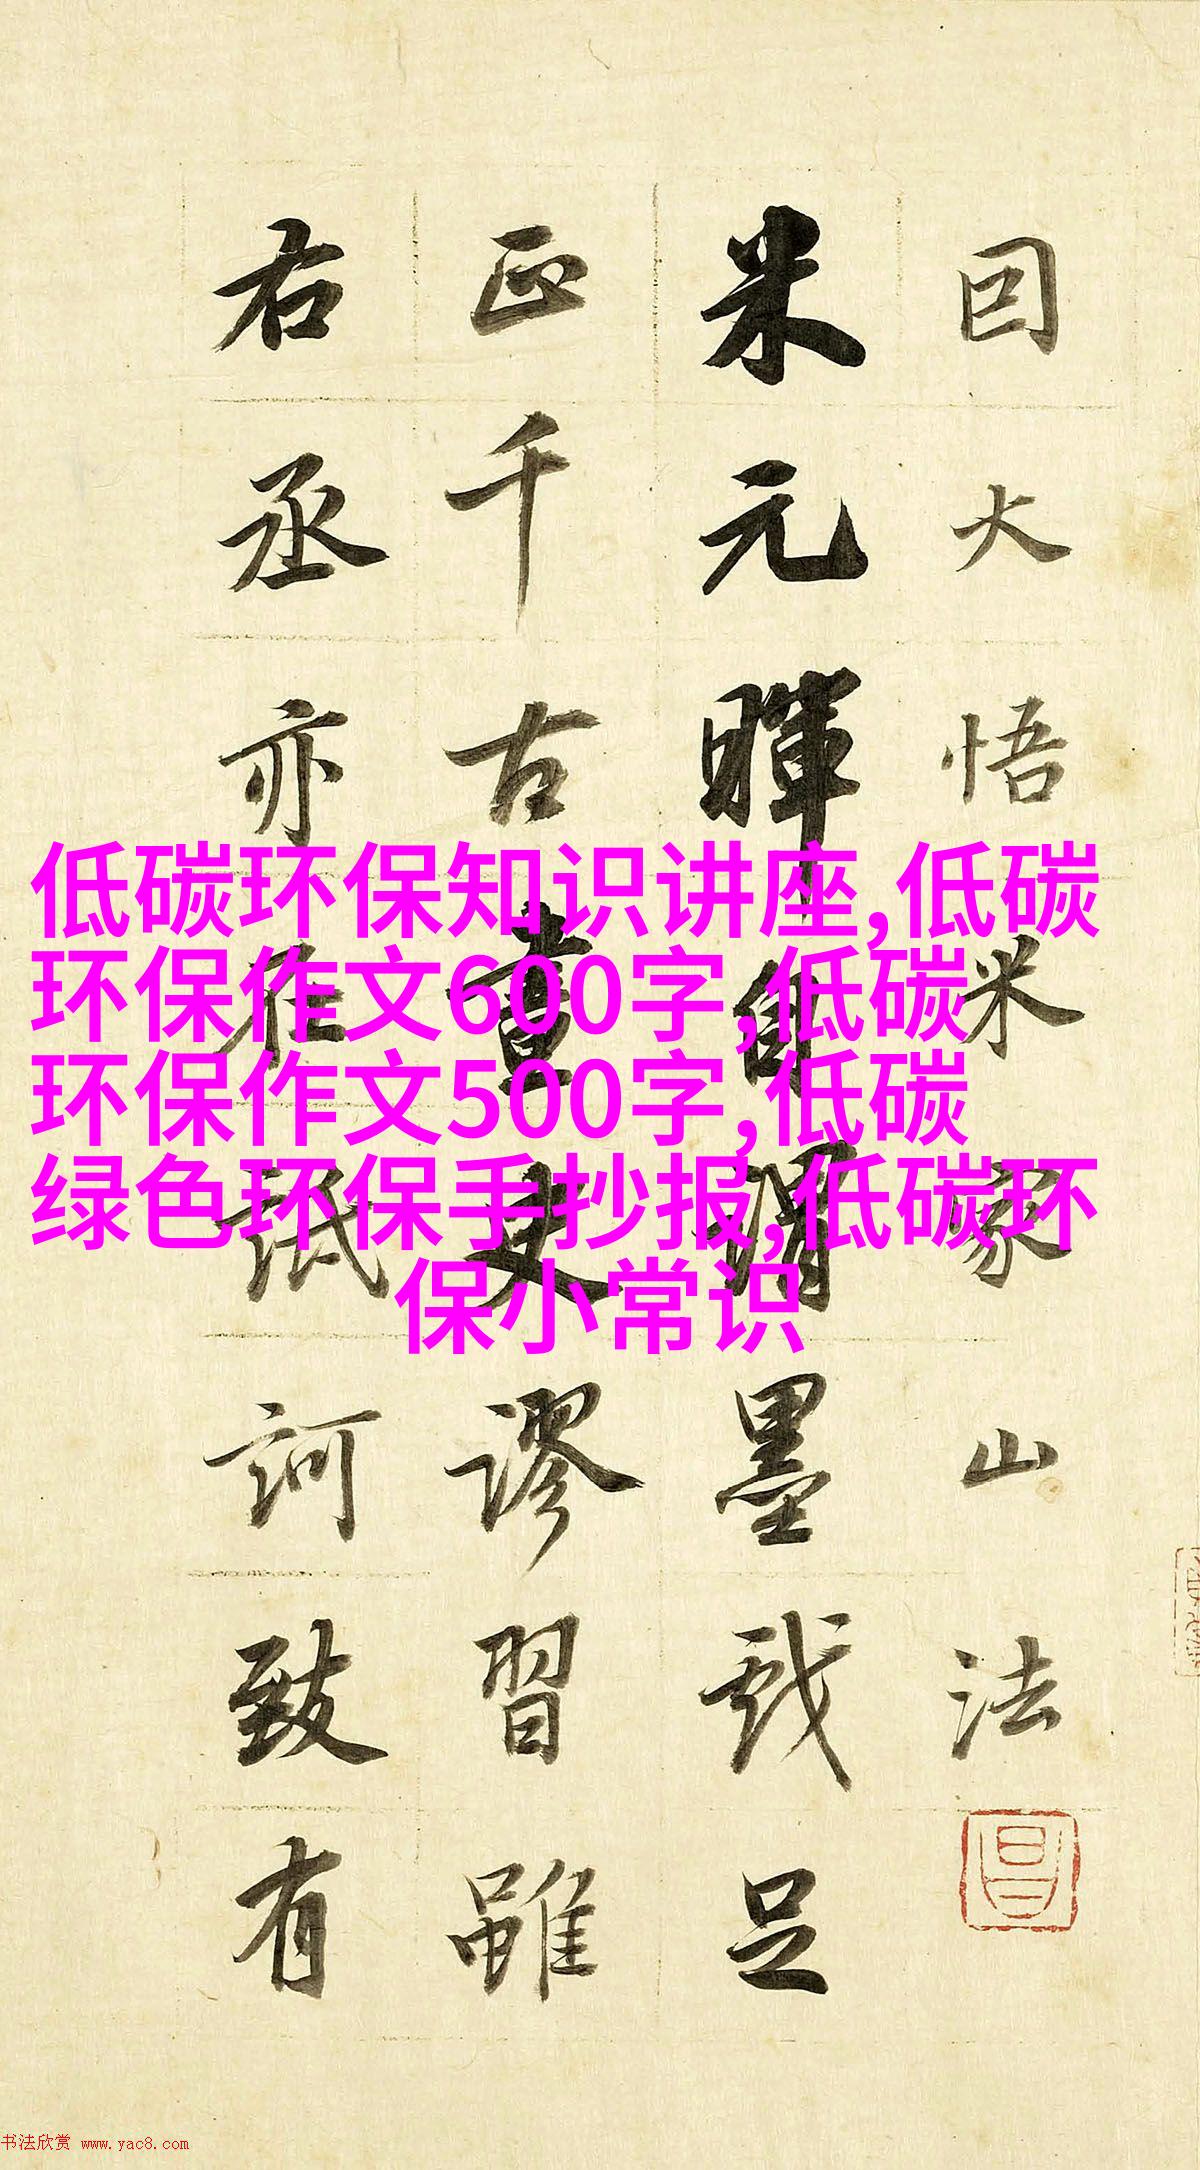 因大悟米家山法
米元暉自謂墨戏足
正千古畫史谬習雖
右丞亦在詆訶致有
低碳环保知识讲座,低碳
环保作文600字,低碳
环保作文500字,低碳
绿色环保手抄报,低碳环
保小常识
书法欣赏 www.yac8.com